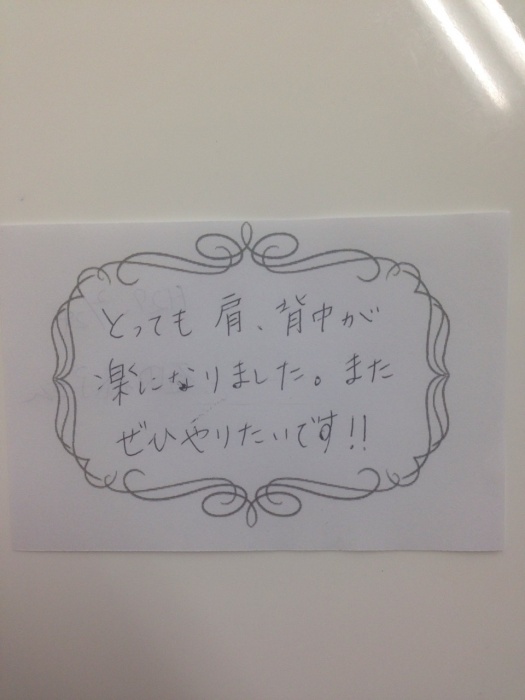 とっても 肩、背中が
楽になりました。また
ぜひやりたいです!!